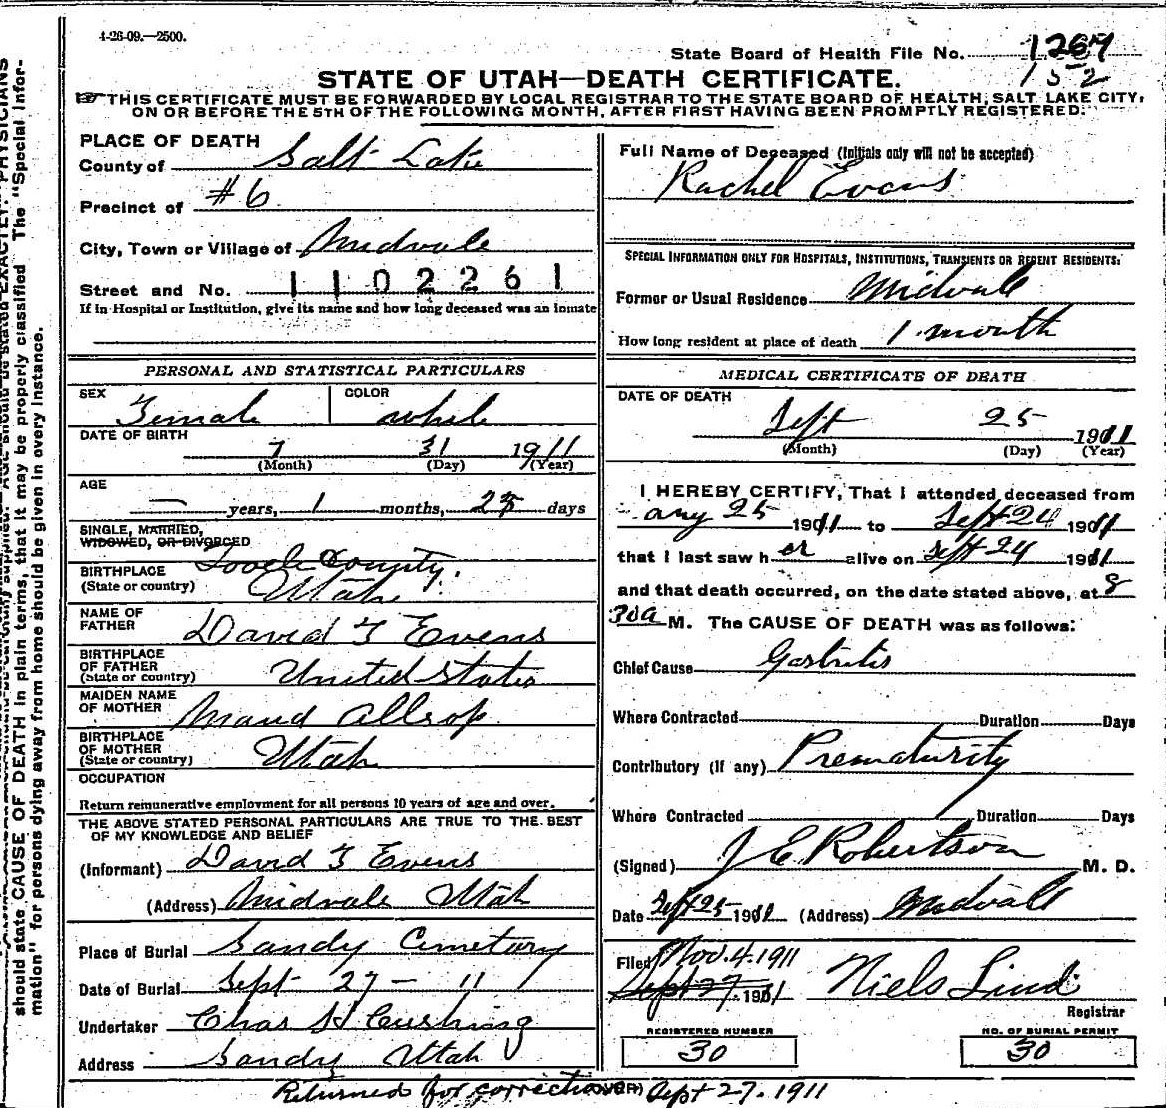 4-26-09.—2500.
State Board of Health File No. 1267
152
STATE OF UTAH—DEATH CERTIFICATE.
THIS CERTIFICATE MUST BE FORWARDED BY LOCAL REGISTRAR TO THE STATE BOARD OF HEALTH, SALT LAKE CITY,
ON OR BEFORE THE 5TH OF THE FOLLOWING MONTH, AFTER FIRST HAVING BEEN PROMPTLY REGISTERED.
PLACE OF DEATH
County of Salt Lake
Precinct of #6
City, Town or Village of Midvale
Street and No. 1102261
If in Hospital or Institution, give its name and how long deceased was an inmate
Full Name of Deceased (Initials only will not be accepted)
Rachel Evans
SPECIAL INFORMATION ONLY FOR HOSPITALS, INSTITUTIONS, TRANSIENTS OR RECENT RESIDENTS:
Former or Usual Residence Midvale
How long resident at place of death 1 month
PERSONAL AND STATISTICAL PARTICULARS
SEX Female COLOR white
DATE OF BIRTH
7 31 1911
(Month) (Day) (Year)
AGE
— years, 1 months, 25 days
SINGLE, MARRIED,
WIDOWED, OR DIVORCED
BIRTHPLACE
(State or country)
Tooele County.
Utah
NAME OF
FATHER
David T Evens
BIRTHPLACE
OF FATHER
(State or country)
United States
MAIDEN NAME
OF MOTHER
Maud Allsop
BIRTHPLACE
OF MOTHER
(State or country)
Utah
OCCUPATION
Return remunerative employment for all persons 10 years of age and over.
THE ABOVE STATED PERSONAL PARTICULARS ARE TRUE TO THE BEST
OF MY KNOWLEDGE AND BELIEF
(Informant) David T Evens
(Address) Midvale Utah
Place of Burial Sandy Cemetary
Date of Burial Sept 27 - 11
Undertaker Chas H Cushing
Address Sandy Utah
MEDICAL CERTIFICATE OF DEATH
DATE OF DEATH
Sept 25 1911
(Month) (Day) (Year)
I HEREBY CERTIFY, That I attended deceased from
25 1911 to Sept 24 1911
that I last saw her alive on Sept 24 1911
and that death occurred, on the date stated above, at 8
30a M. The CAUSE OF DEATH was as follows:
Chief Cause Gastritis
Where Contracted Duration Days
Contributory (if any) Prematurity
Where Contracted Duration Days
(Signed) J E Robertson M. D.
Date Sept 25 1911 (Address) Midvale
Filed Nov. 4. 1911
Sept 27, 1911 Niels Lind
Registrar
REGISTERED NUMBER
30
NO. OF BURIAL PERMIT
30
Returned for correction Sept 27. 1911
should state CAUSE OF DEATH in plain terms, that it may be properly classified. The "Special Infor-
mation" for persons dying away from home should be given in every instance.